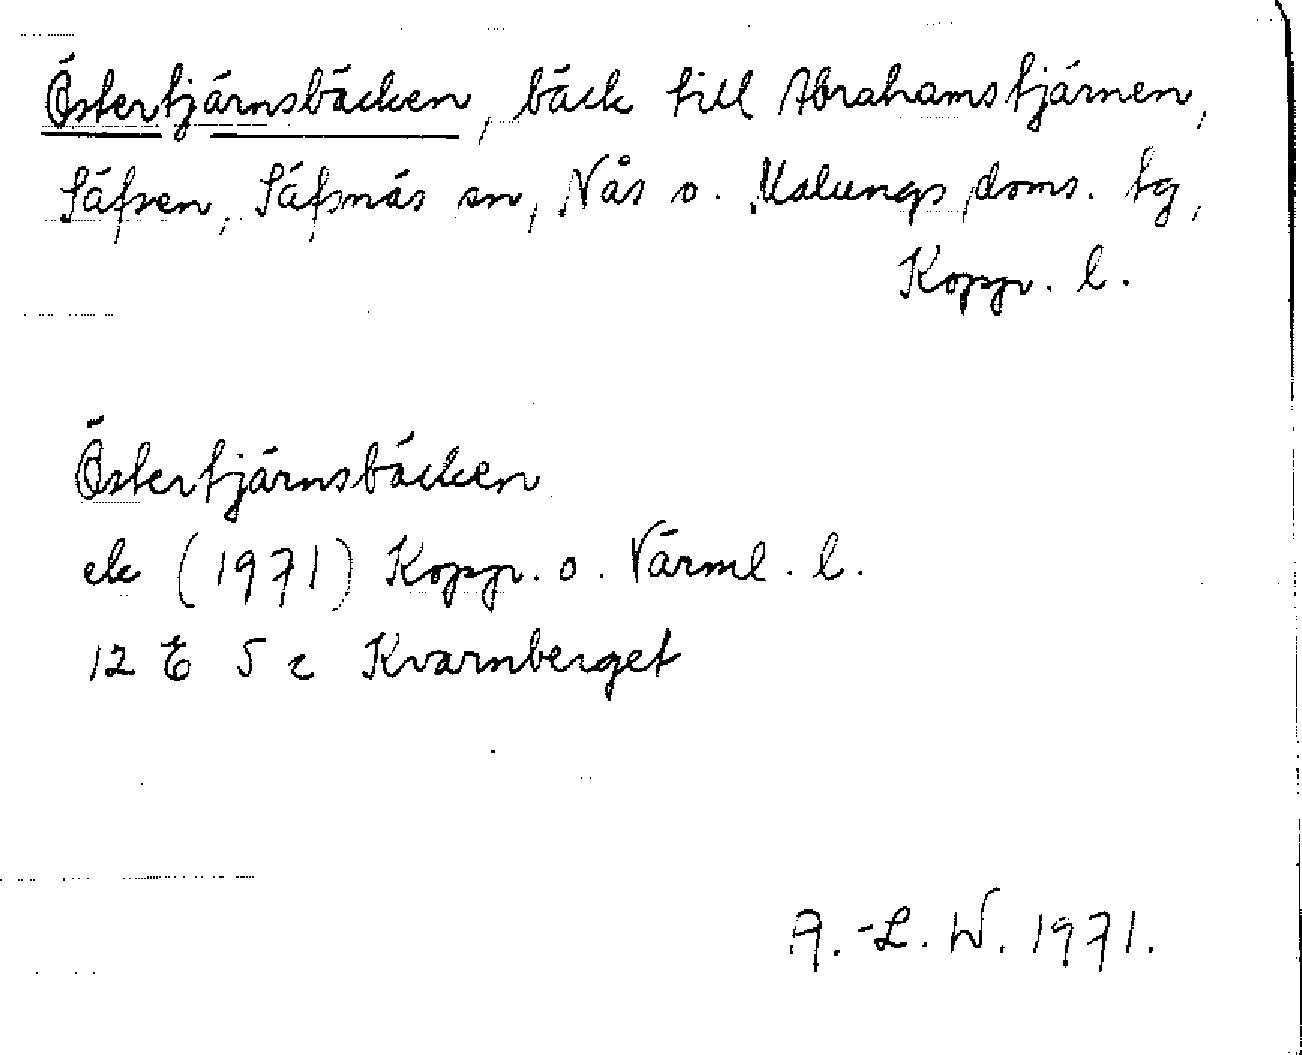 Östertjärnsbäcken, bäck till Abrahamstjärnen,
Säfsen, Säfsnäs sn, Nås o. Malungs doms. tg,
Kopp. l.
Östertjärnsbäcken
ek (1971) Kopp. o. Värml. l.
12 E 5 c Kvarnberget
A.-L. W. 1971.